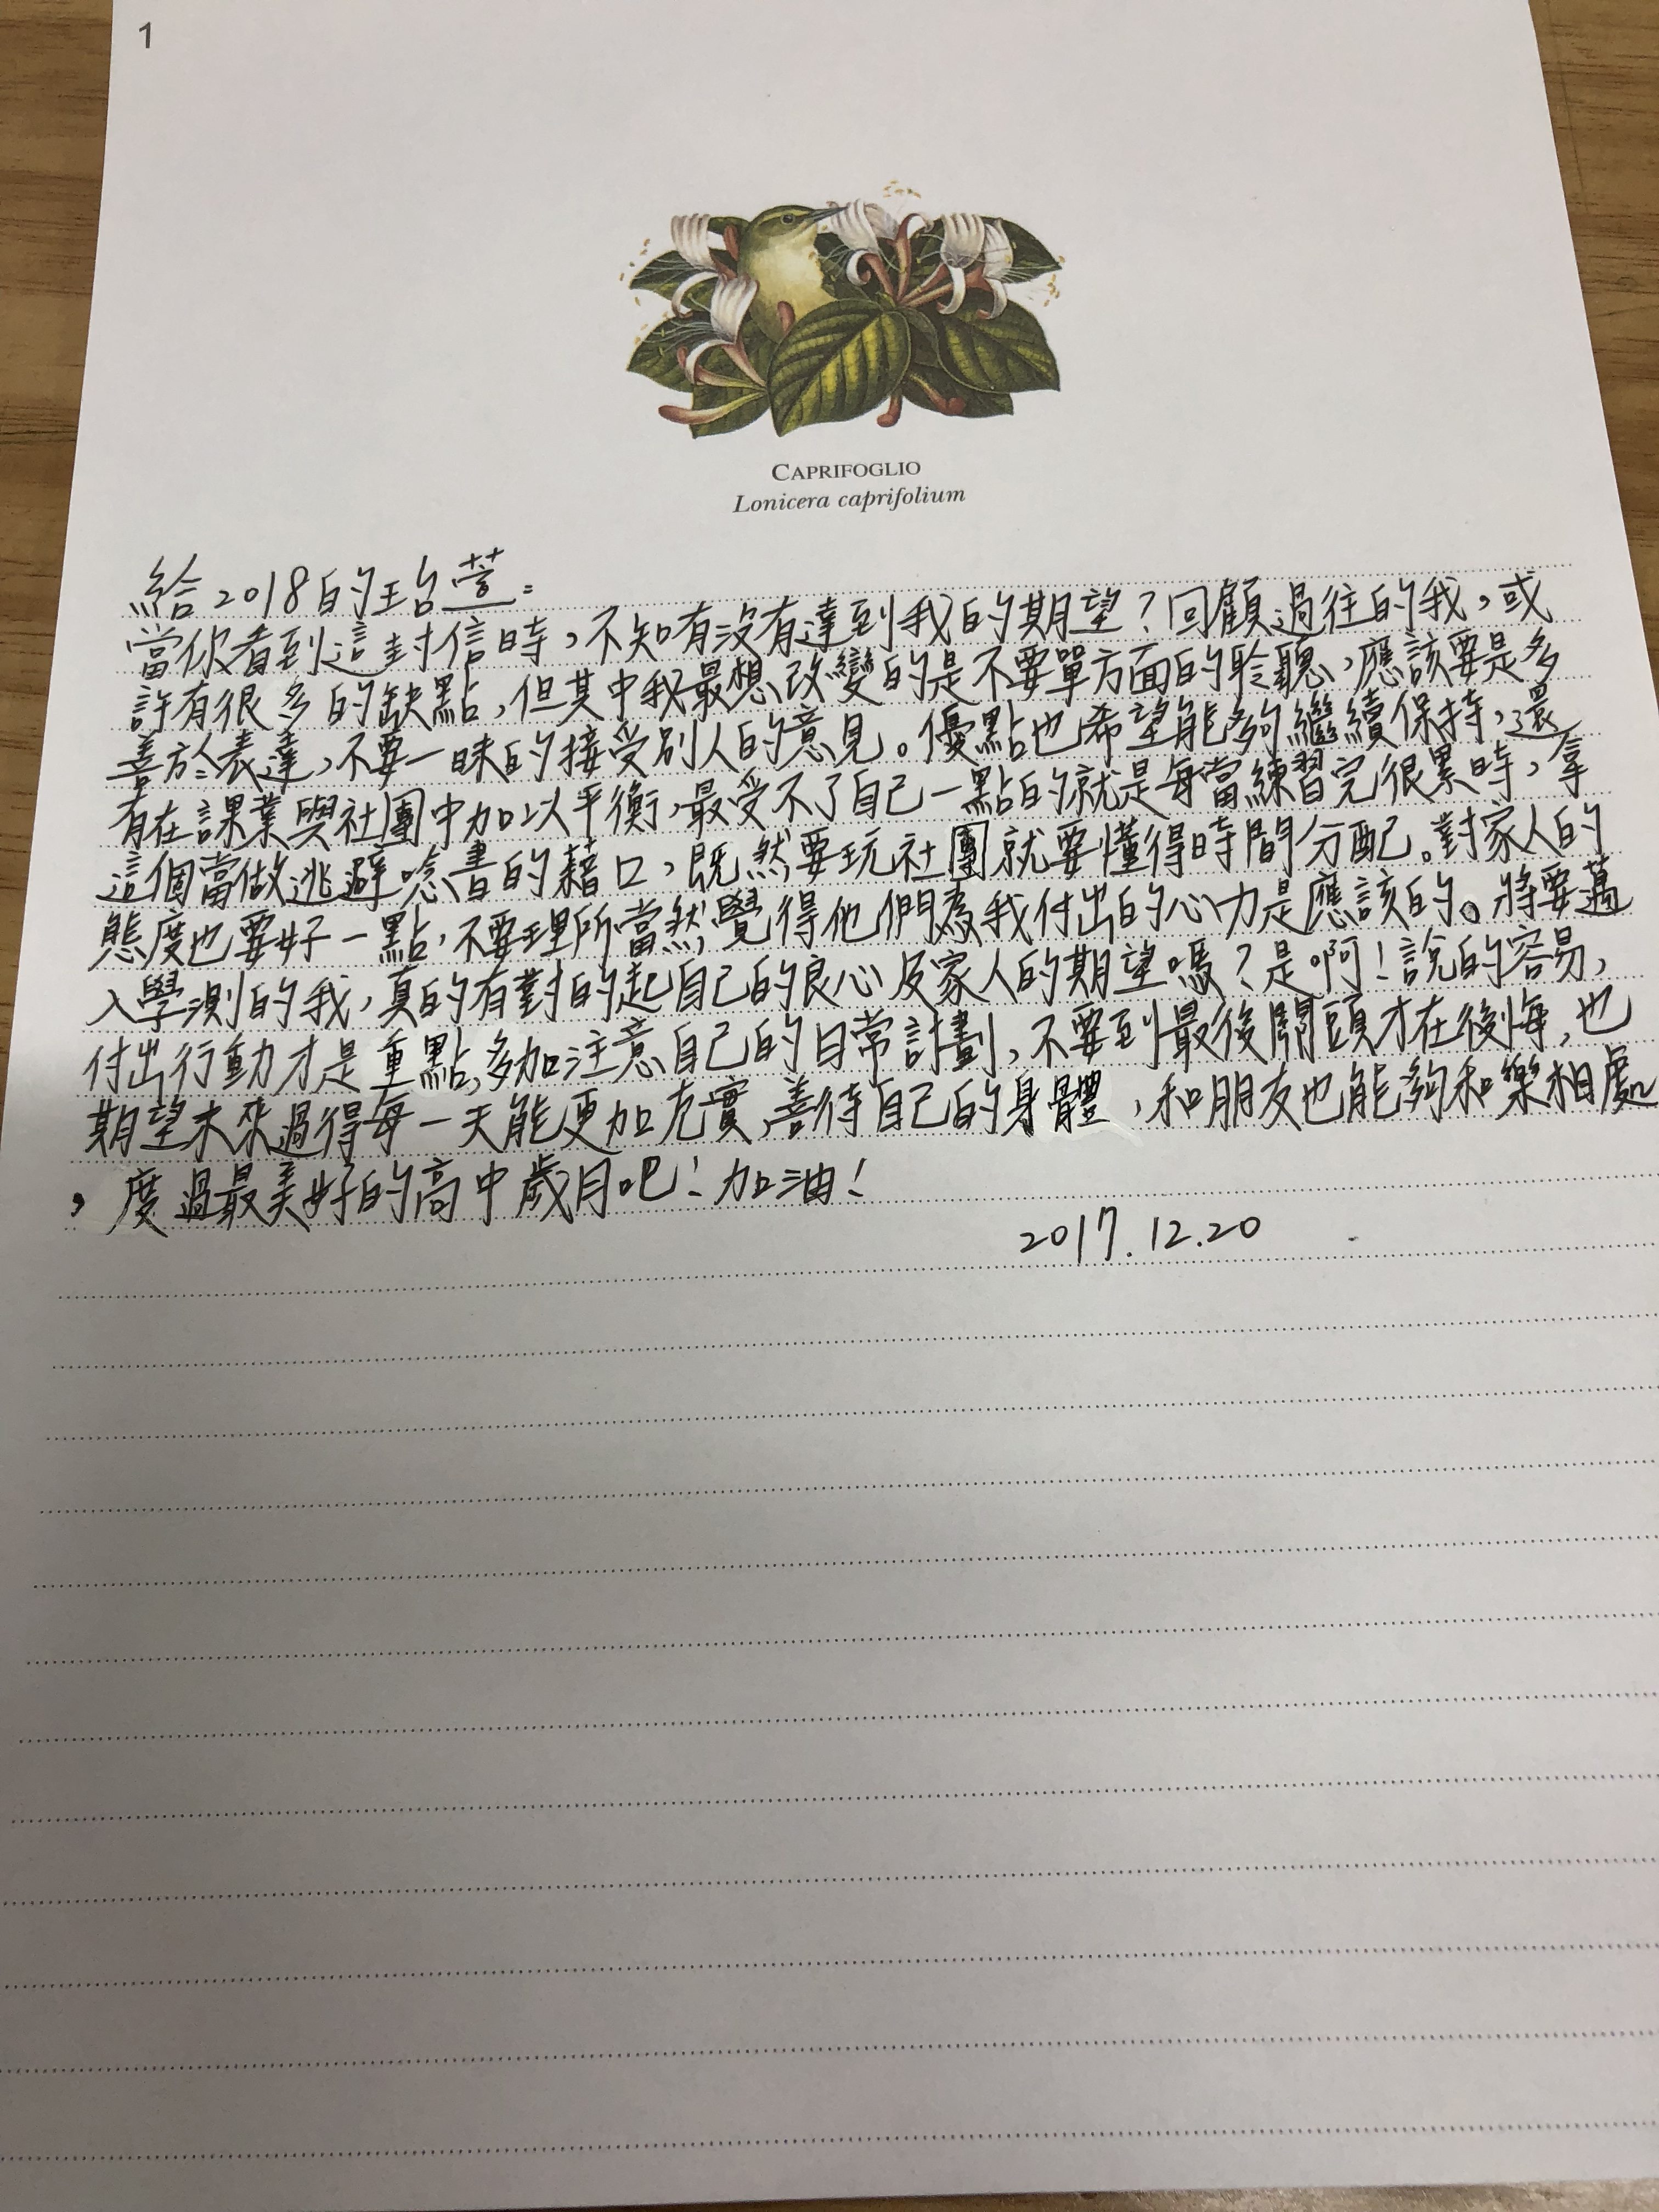 1
CAPRIFOGLIO
Lonicera caprifolium
給2018的珆萱:
當你看到這封信時,不知有沒有達到我的期望?回顧過往的我,或
許有很多的缺點,但其中我最想改變的是不要單方面的聆聽,應該要是多
善於表達,不要一昧的接受別人的意見。優點也希望能夠繼續保持,還
有在課業與社團中加以平衡,最受不了自己一點的就是每當練習完很累時,拿
這個當做逃避唸書的藉口,既然要玩社團就要懂得時間分配。對家人的
態度也要好一點,不要理所當然覺得他們為我付出的心力是應該的。將要邁
入學測的我,真的有對的起自己的良心及家人的期望嗎?是啊!說的容易,
付出行動才是重點,多加注意自己的日常計劃,不要到最後關頭才在後悔,也
期望未來過得每一天能更加充實,善待自己的身體,和朋友也能夠和樂相處
,度過最美好的高中歲月吧!加油!
2017.12.20